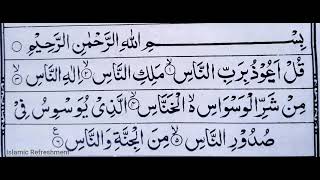 بِسْمِ اللهِ الرَّحْمٰنِ الرَّحِيْمِ ○
قُلْ اَعُوْذُ بِرَبِّ النَّاسِ ۙ﴿۱﴾ مَلِكِ النَّاسِ ۙ﴿۲﴾ اِلٰهِ النَّاسِ ۙ﴿۳﴾
مِنْ شَرِّ الْوَسْوَاسِ ۙ۬ الْخَنَّاسِ ۙ﴿۴﴾ الَّذِيْ يُوَسْوِسُ فِيْ
صُدُوْرِ النَّاسِ ۙ﴿۵﴾ مِنَ الْجِنَّةِ وَالنَّاسِ ﴿۶﴾ ع
Islamic Refreshment